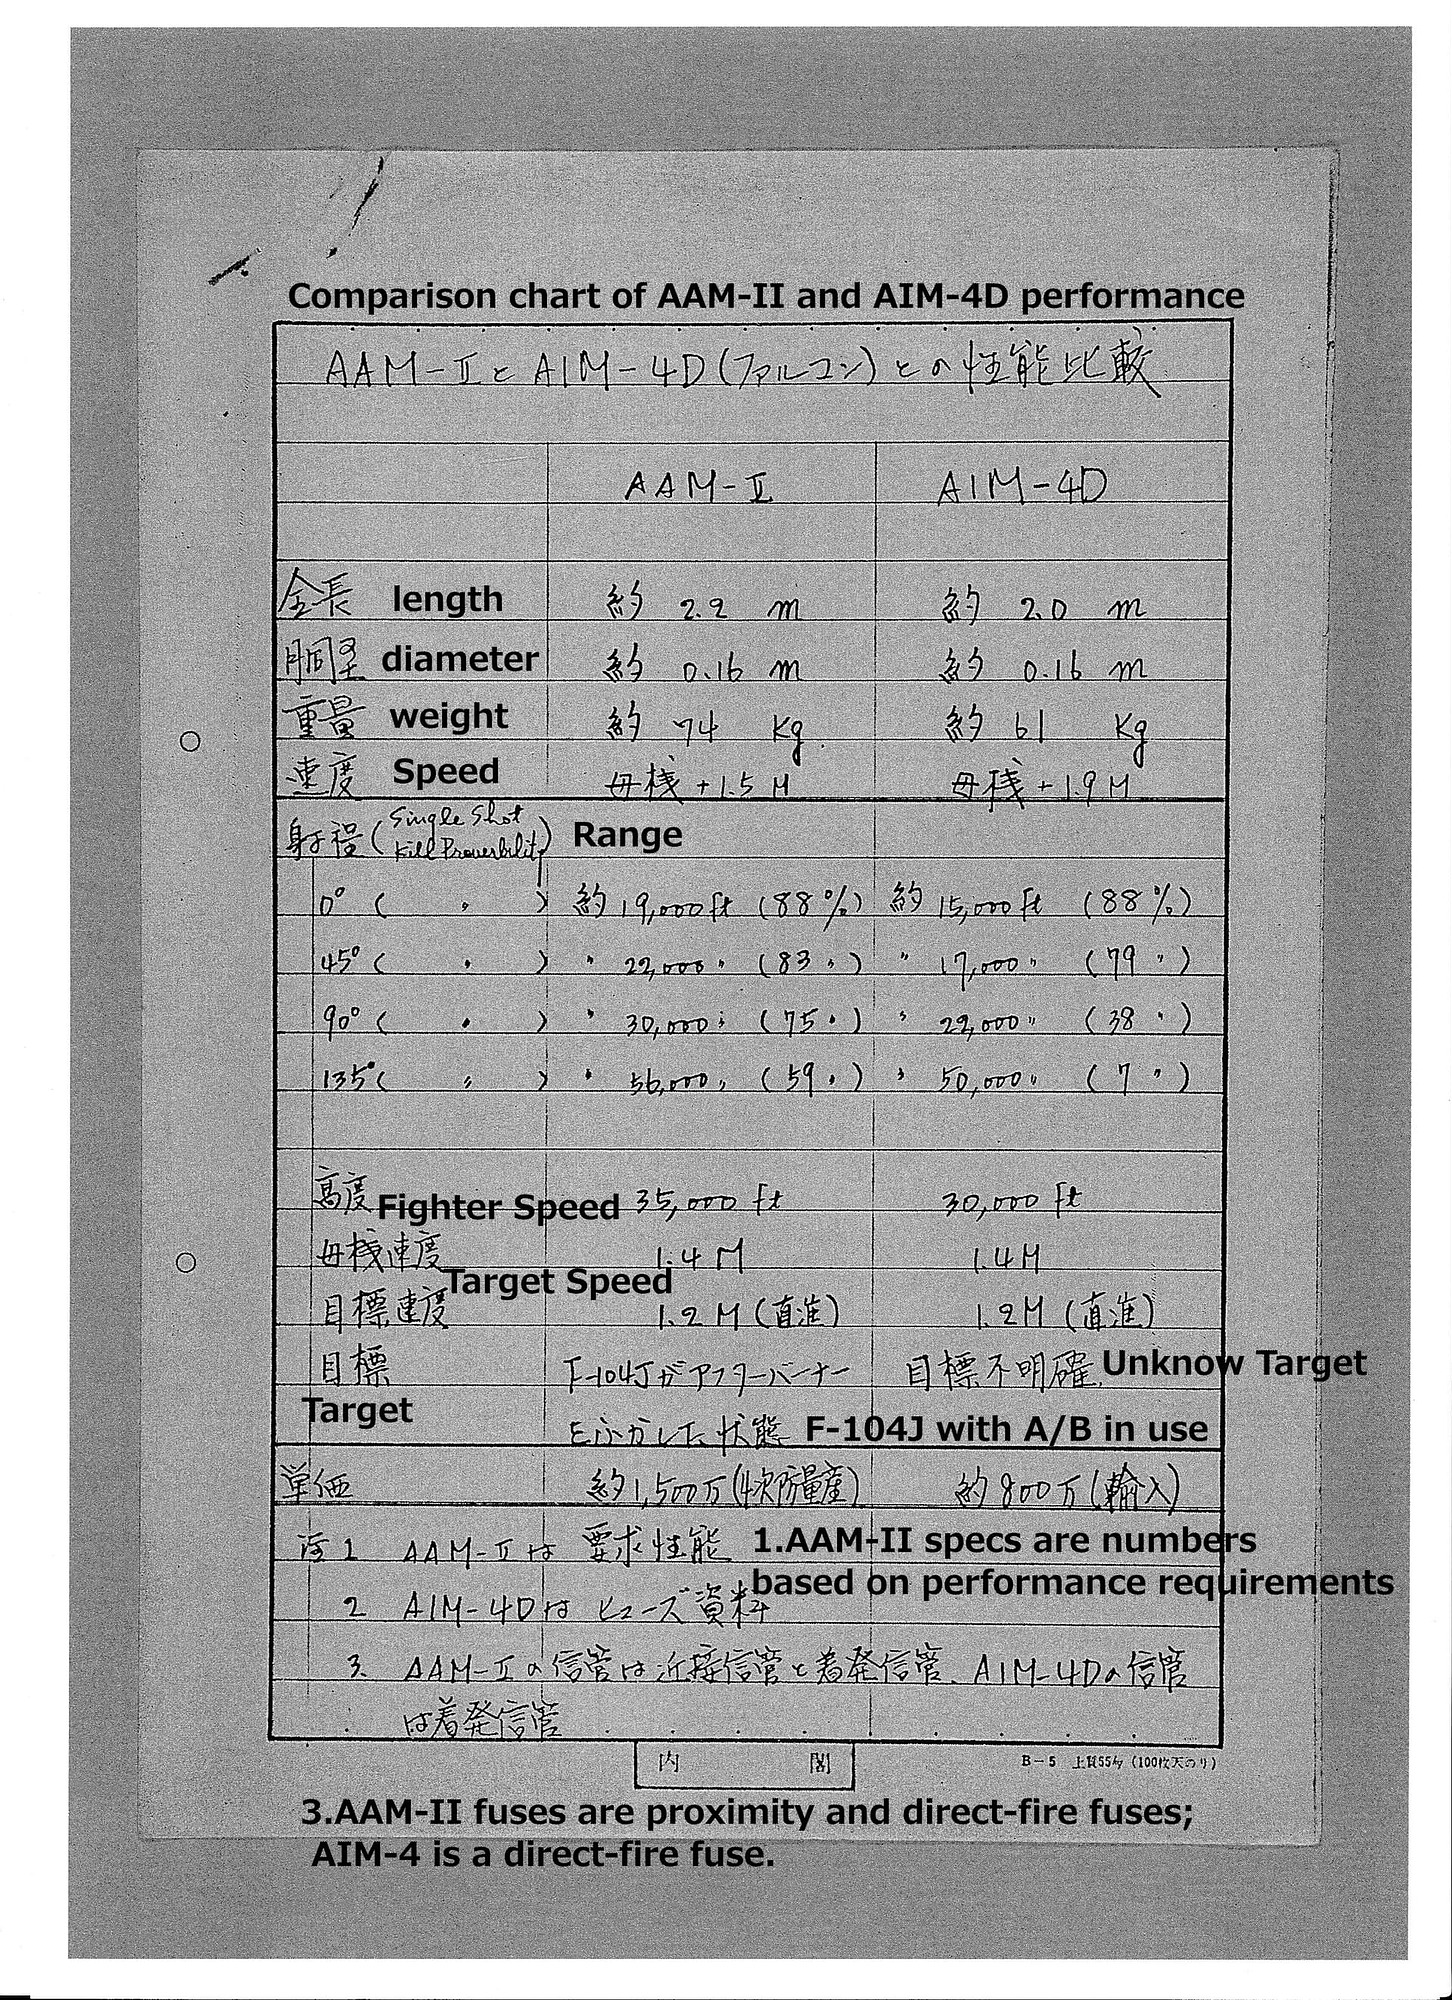 Comparison chart of AAM-II and AIM-4D performance
AAM-ⅡとAIM-4D(ファルコン)との性能比較
AAM-Ⅱ AIM-4D
全長 length 約 2.2 m 約 2.0 m
胴径 diameter 約 0.16 m 約 0.16 m
重量 weight 約 74 Kg 約 61 Kg
速度 Speed 母機+1.5M 母機+1.9M
射程(Single Shot Kill Proverbility) Range
0° ( 〃 ) 約 19,000ft (88%) 約 15,000ft (88%)
45° ( 〃 ) 〃 22,000〃 (83〃) 〃 17,000〃 (79〃)
90° ( 〃 ) 〃 30,000〃 (75〃) 〃 22,000〃 (38〃)
135° ( 〃 ) 〃 56,000〃 (59〃) 〃 50,000〃 (7〃)
高度 Fighter Speed 35,000 ft 30,000 ft
母機速度 1.4M 1.4M
Target Speed
目標速度 1.2M(直進) 1.2M(直進)
目標 F-104Jがアフターバーナー 目標不明確 Unknow Target
Target をふかした状態 F-104J with A/B in use
単価 約1,500万(4次防量産) 約800万(輸入)
注1 AAM-Ⅱは 要求性能 1.AAM-II specs are numbers
based on performance requirements
2 AIM-4Dは ヒューズ資料
3. AAM-Ⅱの信管は近接信管と着発信管、AIM-4Dの信管
は着発信管
内 閣 B-5 上質55kg (100枚天のり)
3.AAM-II fuses are proximity and direct-fire fuses;
AIM-4 is a direct-fire fuse.